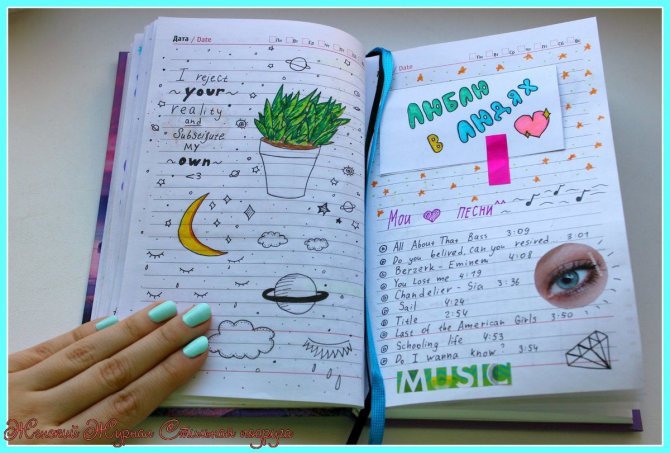 Дата / Date
Пн Вт Ср Чт Пт Сб Вс
I reject
~your~
reality
and
Substitute
MY
~own~
<3
/ Date
Пн Вт Ср Чт Пт Сб Вс
ЛЮБЛЮ
В ЛЮДЯХ
Мои ПЕСНИ^^
All About That Bass 3:09
Do you belived, can you resived... 3:01
Berzerk - Eminem 4:08
You Lose me 4:19
Chandelier - Sia 3:36
Sail 4:24
Title 2:54
Last of the American Girls 3:50
Schooling life 4:53
Do I wanna know 3:54
MUSIC
Женский Журнал Стильная подруга